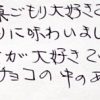 巣ごもり大好き
りに味わいまし
が大好きで
チョコの牛のあ